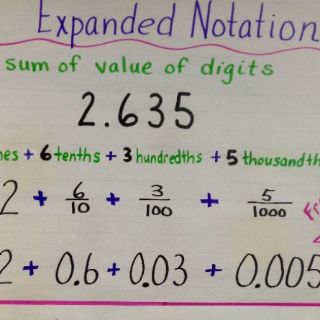 Expanded Notation
sum of value of digits
2.635
nes + 6 tenths + 3 hundredths + 5 thousandth
2 + 6/10 + 3/100 + 5/1000
2 + 0.6 + 0.03 + 0.005